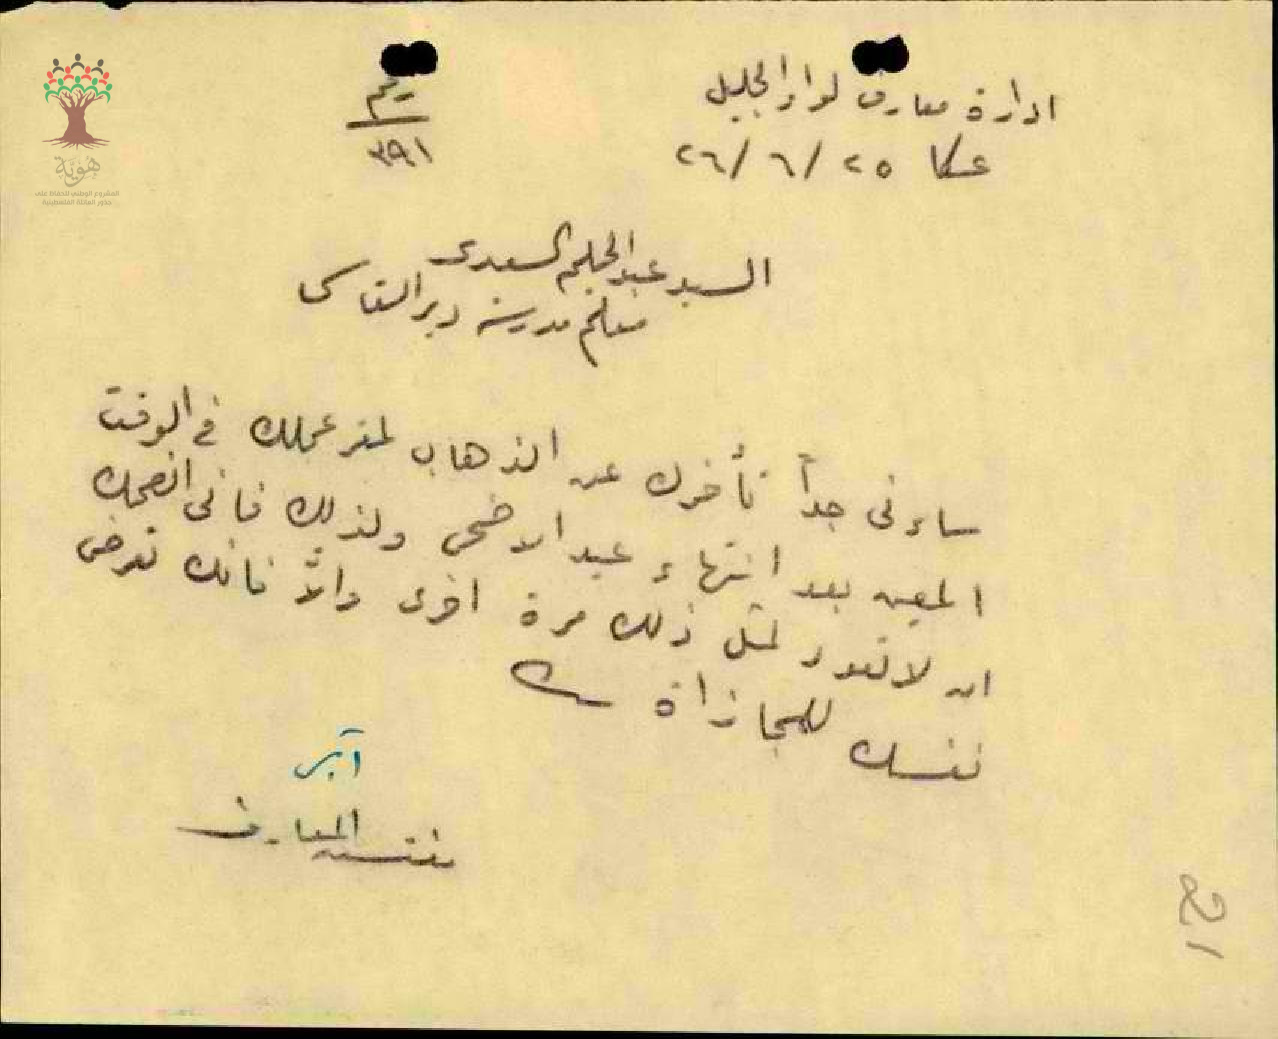 ادارة معارف لواء الجليل
عكا ٢٥/٦/٢٦
رقم
٣٩١
السيد عبد الحليم السعدى
معلم مدرسة دير القاسى
ساءنى جداً تأخرك عن الذهاب لمقر عملك فى الوقت
المعين بعد انتهاء عيد الاضحى ولذلك فانى انصحك
ان لا تعود لمثل ذلك مرة اخرى والاّ فانك تعرض
نفسك للمجازاة
مفتش المعارف
21
هوية
المشروع الوطني للحفاظ على
جذور العائلة الفلسطينية